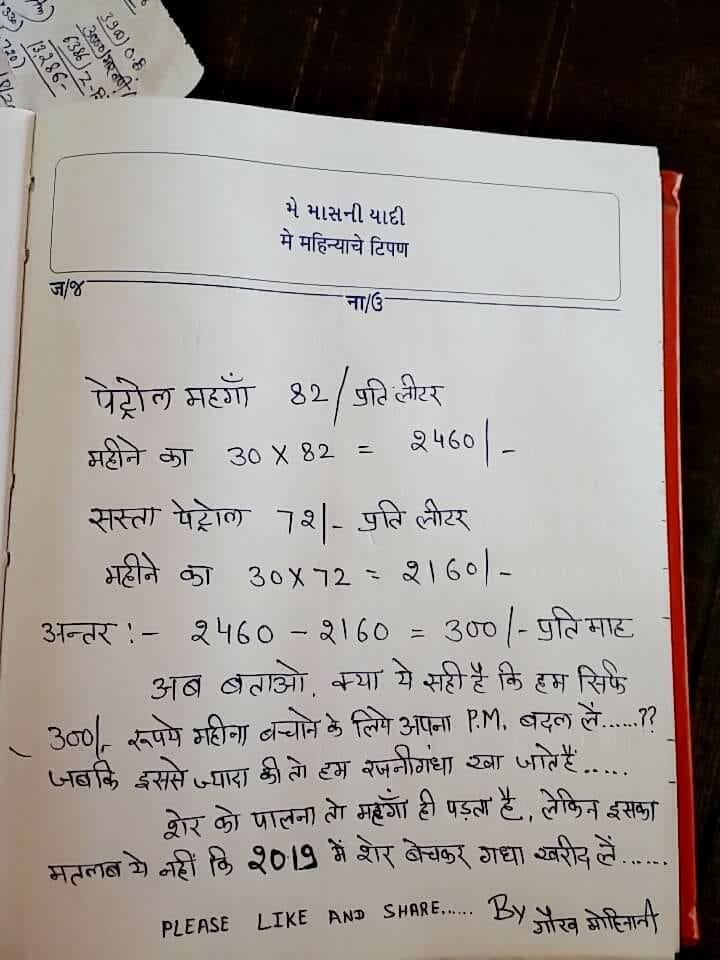 3900) 0.B.
6386)
13286-
720)
મે માસની યાદી
मे महिन्याचे टिपण
ज/જ
ना/ઉ
पेट्रोल महगाँ 82/ प्रति लीटर
महीने का 30 X 82 = 2460/-
सस्ता पेट्रोल 72/- प्रति लीटर
महीने का 30 X 72 = 2160/-
अन्तर :- 2460 - 2160 = 300/- प्रति माह
अब बताओ, क्या ये सही है कि हम सिर्फ
300/- रूपये महीना बचाने के लिये अपना P.M. बदल लें......??
जबकि इससे ज्यादा की तो हम रजनीगंधा खा जाते हैं.....
शेर को पालना तो महगाँ ही पड़ता है, लेकिन इसका
मतलब ये नहीं कि 2019 में शेर बेचकर गधा खरीद लें......
PLEASE LIKE AND SHARE...... By गौरव मोहिनानी